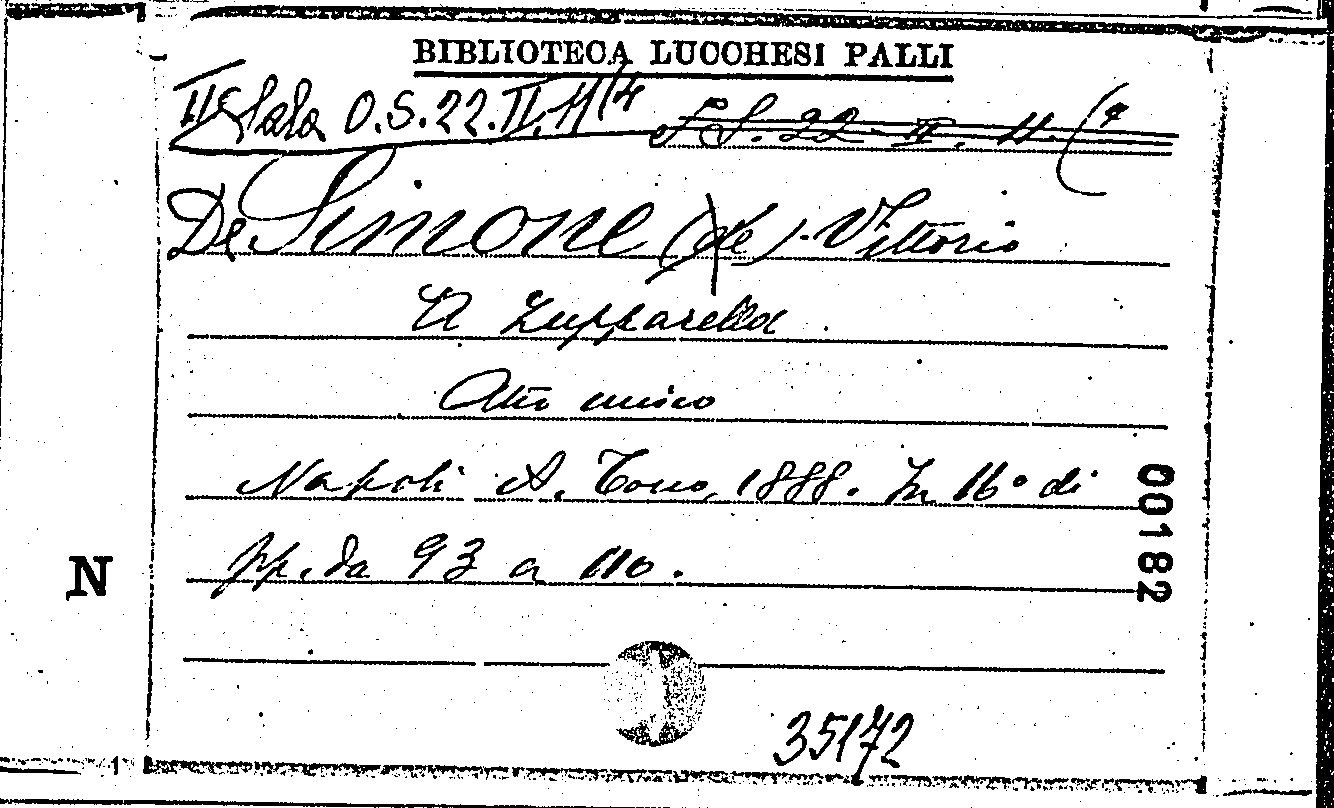 BIBLIOTECA LUCCHESI PALLI
IIª Sala O.S.22.II.11/4 S.S. 22 II. 11 (4
De Simone (de). Vittorio
'A Zupparella.
Atto unico
Napoli A. Tocco, 1888. In 16° di
pp. da 93 a 110.
35172
00182
N